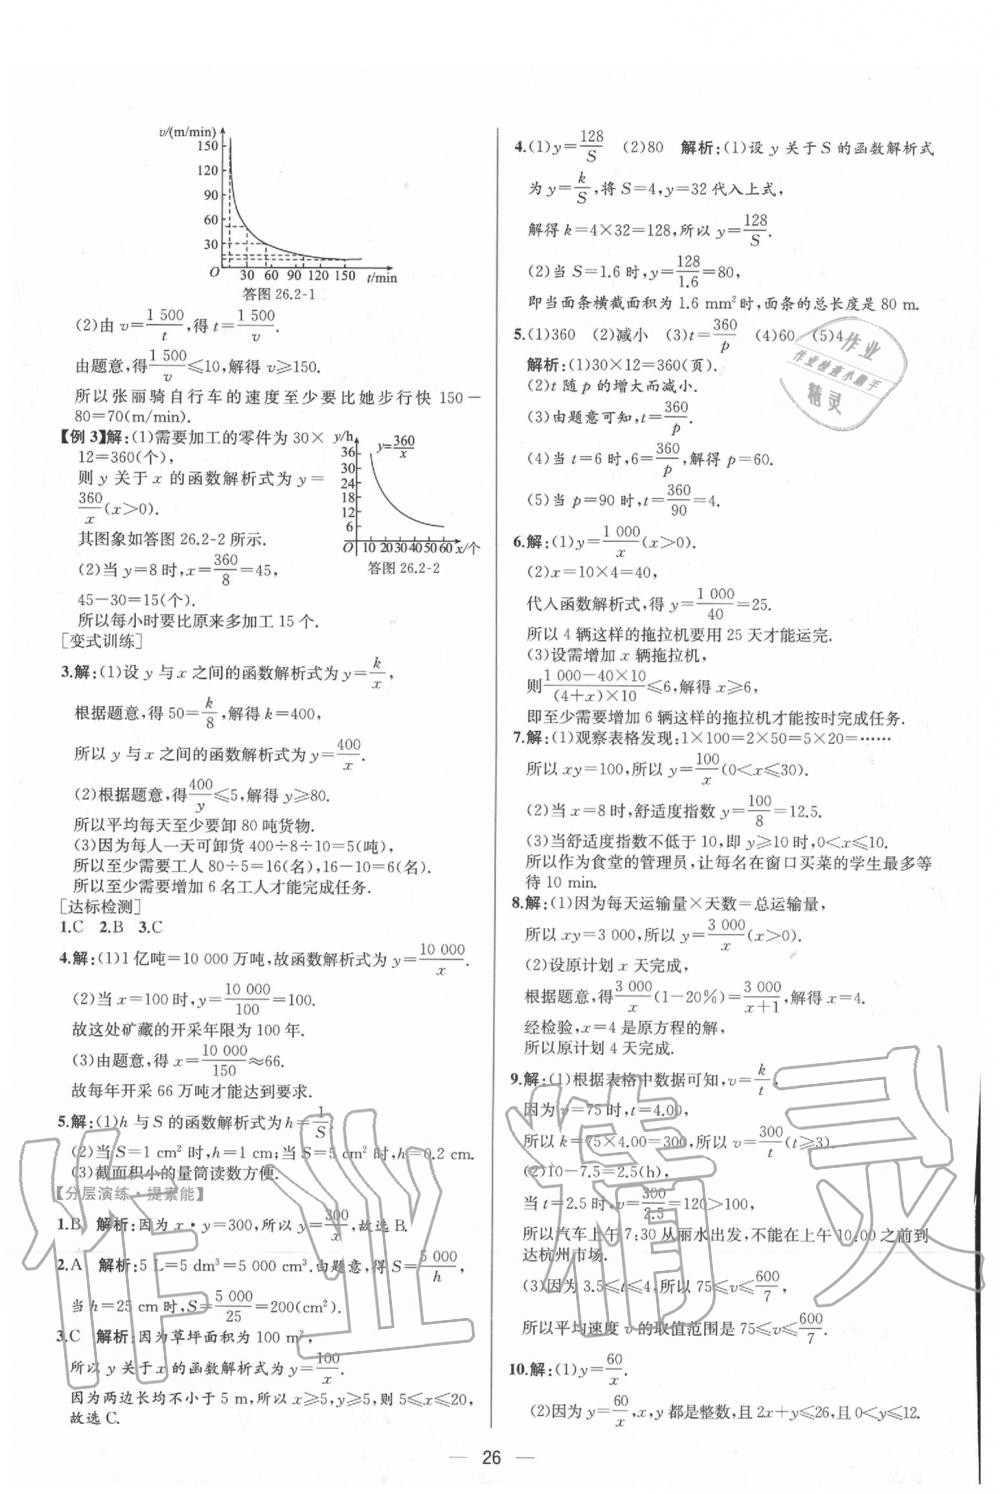 v/(m/min)
150
120
90
60
30
O 30 60 90 120 150 t/min
答图26.2-1
(2)由 v=1 500/t,得 t=1 500/v.
由题意,得1 500/v≤10,解得 v≥150.
所以张丽骑自行车的速度至少要比她步行快 150-
80=70(m/min).
【例 3】解:(1)需要加工的零件为 30×
12=360(个),
则 y 关于 x 的函数解析式为 y=
360/x(x>0).
其图象如答图 26.2-2 所示.
(2)当 y=8 时,x=360/8=45,
45-30=15(个).
所以每小时要比原来多加工 15 个.
y/h
y=360/x
36
30
24
18
12
6
O 10 20 30 40 50 60 x/个
答图 26.2-2
[变式训练]
3.解:(1)设 y 与 x 之间的函数解析式为 y=k/x,
根据题意,得 50=k/8,解得 k=400,
所以 y 与 x 之间的函数解析式为 y=400/x.
(2)根据题意,得400/y≤5,解得 y≥80.
所以平均每天至少要卸 80 吨货物.
(3)因为每人一天可卸货 400÷8÷10=5(吨),
所以至少需要工人 80÷5=16(名),16-10=6(名).
所以至少需要增加 6 名工人才能完成任务.
[达标检测]
1.C 2.B 3.C
4.解:(1)1 亿吨=10 000 万吨,故函数解析式为 y=10 000/x.
(2)当 x=100 时,y=10 000/100=100.
故这处矿藏的开采年限为 100 年.
(3)由题意,得 x=10 000/150≈66.
故每年开采 66 万吨才能达到要求.
5.解:(1)h 与 S 的函数解析式为 h=1/S.
(2)当 S=1 cm²时,h=1 cm;当 S=5 cm²时,h=0.2 cm.
(3)截面积小的量筒读数方便.
【分层演练·提素能】
1.B 解析:因为 x·y=300,所以 y=300/x,故选 B.
2.A 解析:5 L=5 dm³=5 000 cm³.由题意,得 S=5 000/h,
当 h=25 cm 时,S=5 000/25=200(cm²).
3.C 解析:因为草坪面积为 100 m²,
所以 y 关于 x 的函数解析式为 y=100/x.
因为两边长均不小于 5 m,所以 x≥5,y≥5,则 5≤x≤20.
故选 C.
4.(1)y=128/S (2)80 解析:(1)设 y 关于 S 的函数解析式
为 y=k/S,将 S=4,y=32 代入上式,
解得 k=4×32=128,所以 y=128/S.
(2)当 S=1.6 时,y=128/1.6=80,
即当面条横截面积为 1.6 mm²时,面条的总长度是 80 m.
5.(1)360 (2)减小 (3)t=360/p (4)60 (5)4
解析:(1)30×12=360(页).
(2)t 随 p 的增大而减小.
(3)由题意可知,t=360/p.
(4)当 t=6 时,6=360/p,解得 p=60.
(5)当 p=90 时,t=360/90=4.
6.解:(1)y=1 000/x(x>0).
(2)x=10×4=40,
代入函数解析式,得 y=1 000/40=25.
所以 4 辆这样的拖拉机要用 25 天才能运完.
(3)设需增加 x 辆拖拉机,
则1 000-40×10/(4+x)×10≤6,解得 x≥6,
即至少需要增加 6 辆这样的拖拉机才能按时完成任务.
7.解:(1)观察表格发现:1×100=2×50=5×20=……
所以 xy=100,所以 y=100/x(0<x≤30).
(2)当 x=8 时,舒适度指数 y=100/8=12.5.
(3)当舒适度指数不低于 10,即 y≥10 时,0<x≤10.
所以作为食堂的管理员,让每名在窗口买菜的学生最多等
待 10 min.
8.解:(1)因为每天运输量×天数=总运输量,
所以 xy=3 000,所以 y=3 000/x(x>0).
(2)设原计划 x 天完成,
根据题意,得3 000/x(1-20%)=3 000/x+1,解得 x=4.
经检验,x=4 是原方程的解,
所以原计划 4 天完成.
9.解:(1)根据表格中数据可知,v=k/t,
因为 v=75 时,t=4.00,
所以 k=75×4.00=300,所以 v=300/t(t≥3).
(2)10-7.5=2.5(h),
当 t=2.5 时,v=300/2.5=120>100,
所以汽车上午 7:30 从丽水出发,不能在上午 10:00 之前到
达杭州市场.
(3)因为 3.5≤t≤4,所以 75≤v≤600/7,
所以平均速度 v 的取值范围是 75≤v≤600/7.
10.解:(1)y=60/x.
(2)因为 y=60/x,x,y 都是整数,且 2x+y≤26,且 0<y≤12.
作业
作业检查小助手
精灵
作业精灵
— 26 —